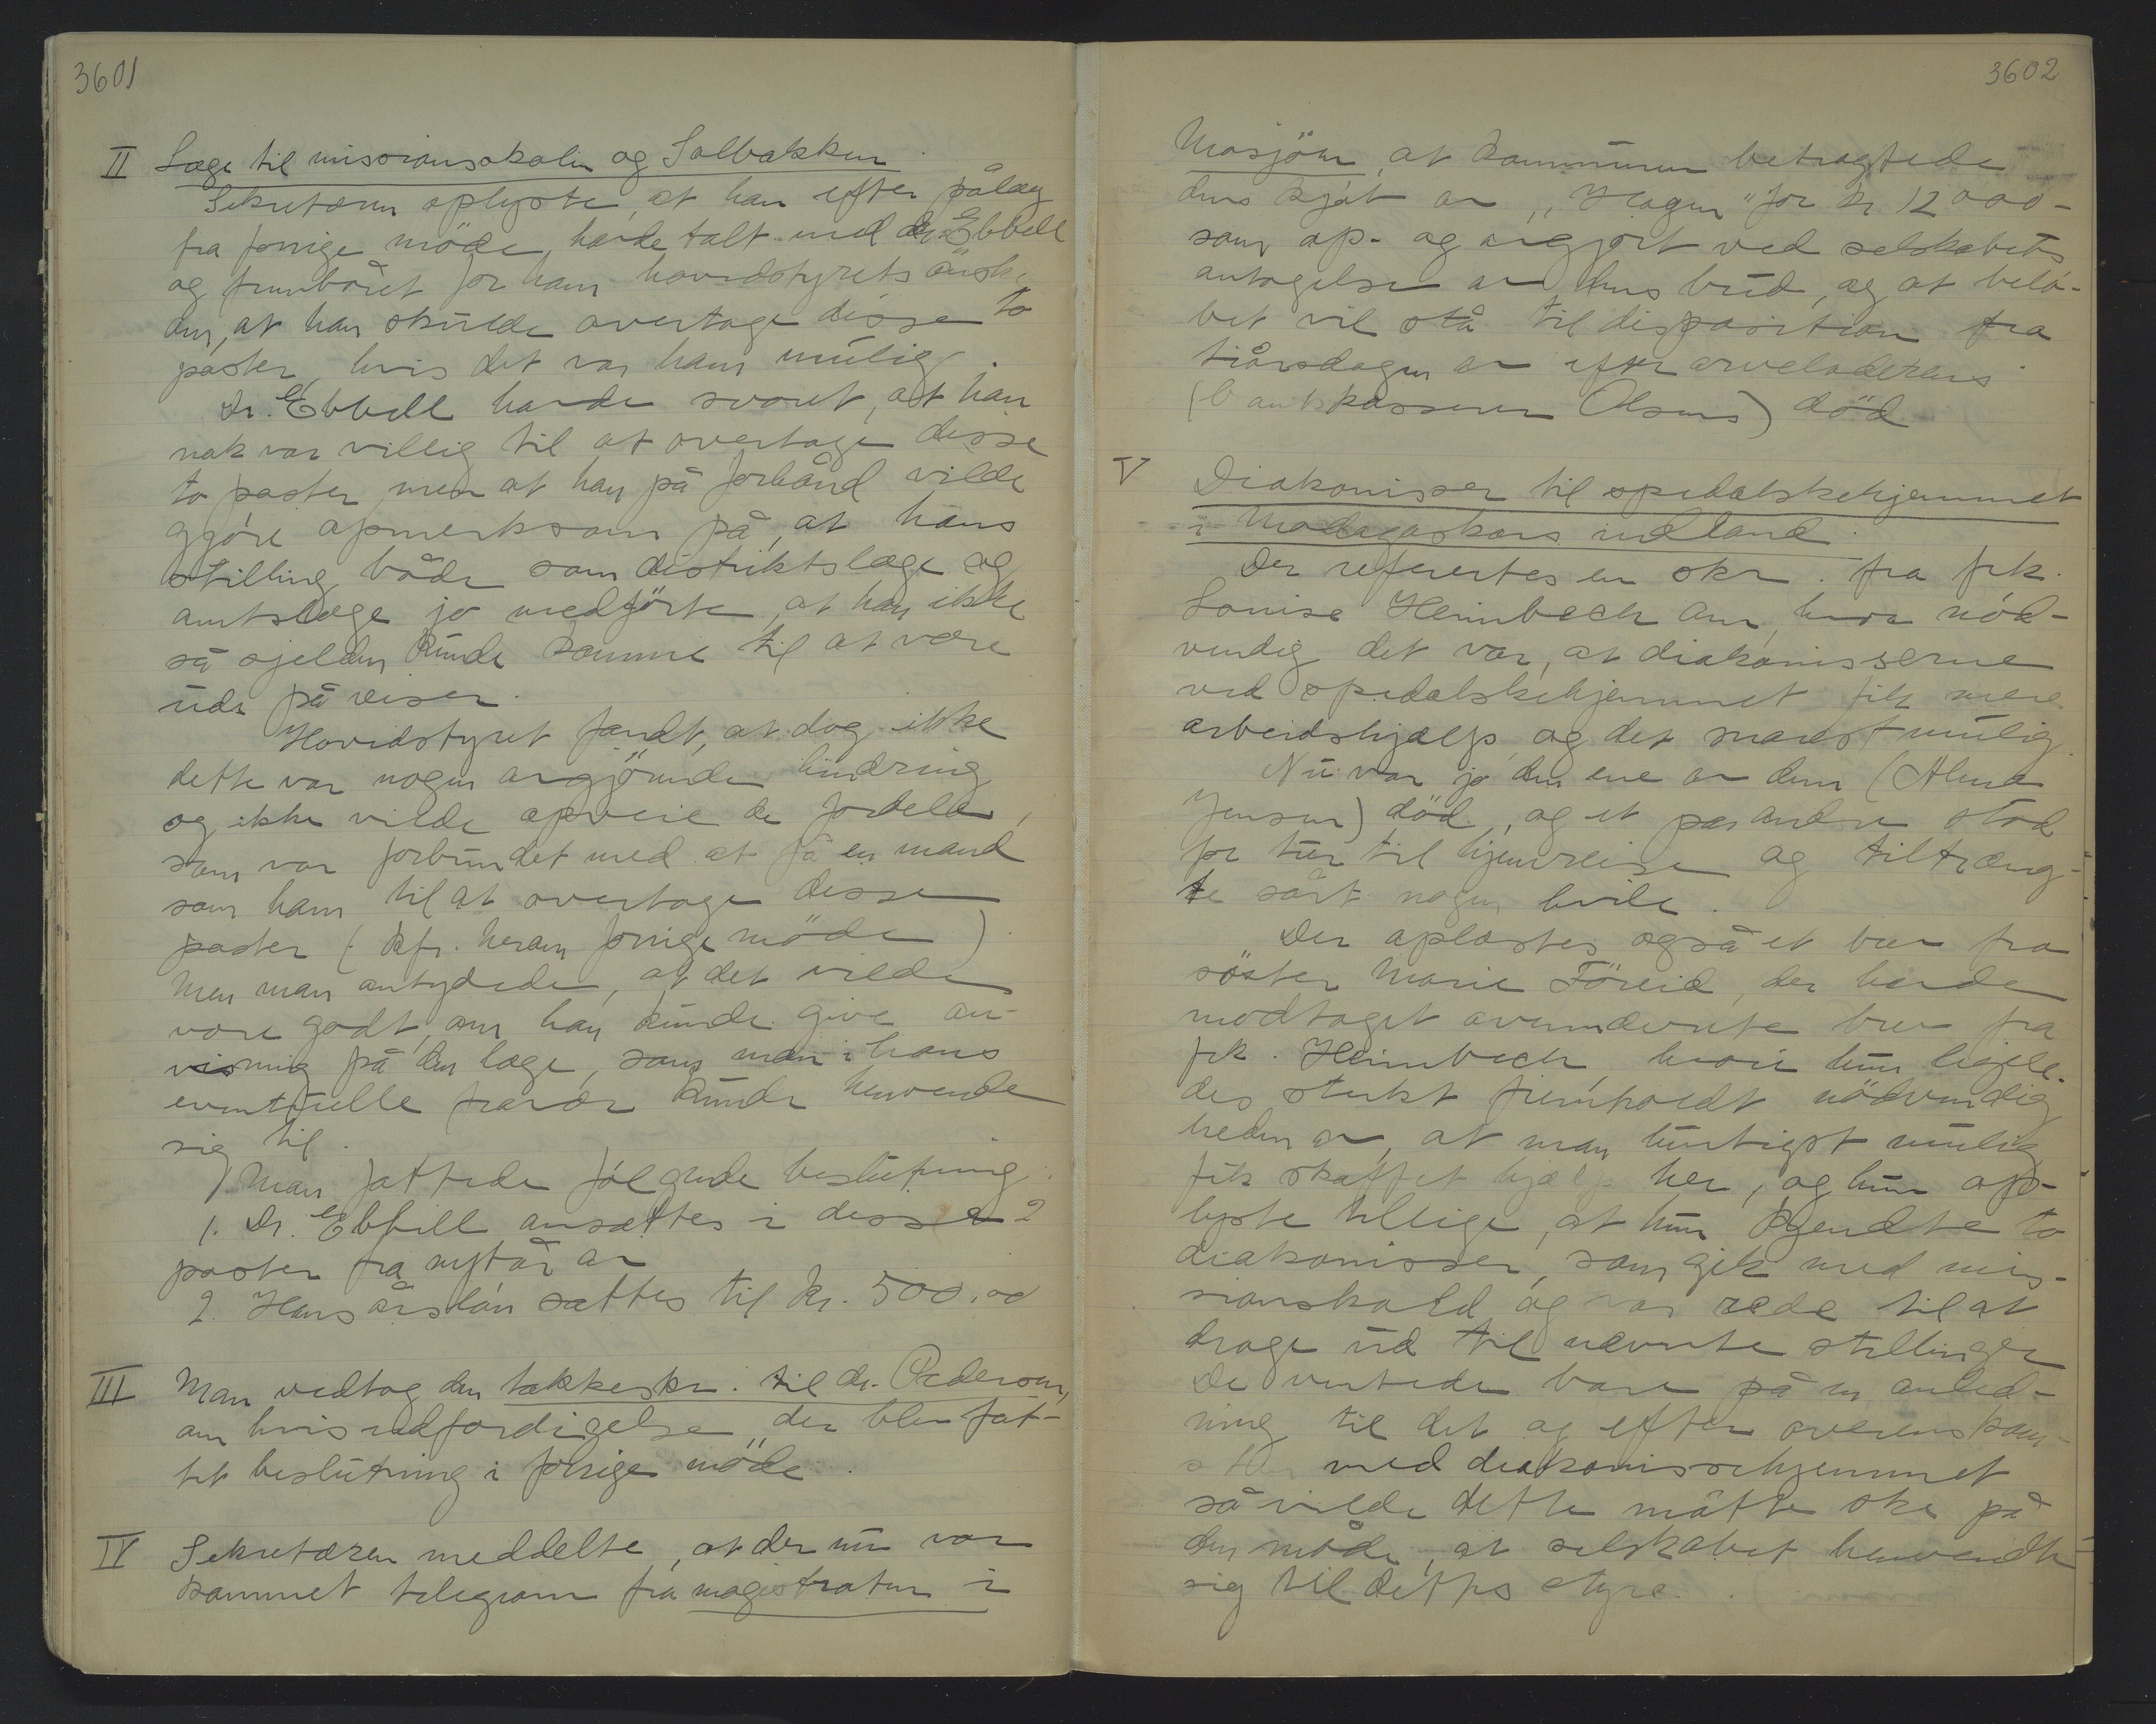 3601
II Læge til missionsskolen og Solbakken
Sekretæren oplyste, at han efter pålæg
fra forrige möde havde talt med dr. Ebbell
og frembåret for ham hovedstyrets önske
om, at han skulde overtage disse to
poster, hvis det var ham mulig.
Dr. Ebbell havde svaret, at han
nok var villig til at overtage disse
to poster, men at han på forhånd vilde
gjöre opmerksom på, at hans
stilling både som distriktslæge og
amtslæge jo medförte, at han ikke
så sjelden kunde komme til at være
ude på reiser.
Hovedstyret fandt, at dog ikke
dette var nogen avgjörende hindring
og ikke vilde opveie de fordele,
som var forbundet med at få en mand
som ham til at overtage disse
poster (kfr. herom forrige möde)
Men man antydede, at det vilde
være godt, om han kunde give an-
visning på den læge, som man i hans
eventuelle fravær kunde henvende
sig til.
Man fattede fölgende beslutning:
1. Dr. Ebbell ansættes i disse 2
poster fra nytår av
2. Hans årslön sættes til kr. 500,00
III Man vedtog den takkeskr. til dr. Pedersen,
om hvis udfærdigelse der blev fat-
tet beslutning i forrige möde.
IV Sekretæren meddelte, at der nu var
kommet telegram fra magistraten i
3602
Mosjöen, at kommunen betragtede
dens kjöb av "Hagen" for kr. 12 000-
som op- og avgjort ved selskabets
antagelse av dens bud, og at belö-
bet vil stå til disposition fra
tiårsdagen av efter arveladerens
(bankkasserer Olsens) död
V Diakonisser til spedalskehjemmet
i Madagaskars indland.
Der refereres en skr. fra frk.
Louise Heimbech om, hvor nöd-
vendig det var, at diakonisserne
ved spedalskehjemmet fik mere
arbeidshjælp og det snarest mulig.
Nu var jo den ene av dem (Alma
Jensen) död, og et par andre stod
for tur til hjemreise og tiltræng-
te sårt nogen hvile.
Der oplæstes også et brev fra
söster Marie Föreid, der havde
modtaget ovennævnte brev fra
frk. Heimbech, hvori hun ligele-
des sterkt fremholdt nödvendig
heden av, at man hurtigst mulig
fik skaffet hjælp her, og hun op-
lyste tillige, at hun kjendte to
diakonisser, som gik med mis-
sionskald og var rede til at
drage ud til nævnte stillinger
De ventede bare på en anled-
ning til det og efter overenskom-
med diakonissehjemmet
så vilde dette måtte ske på
den måde, at selskabet henvendte
sig til dettes styre.